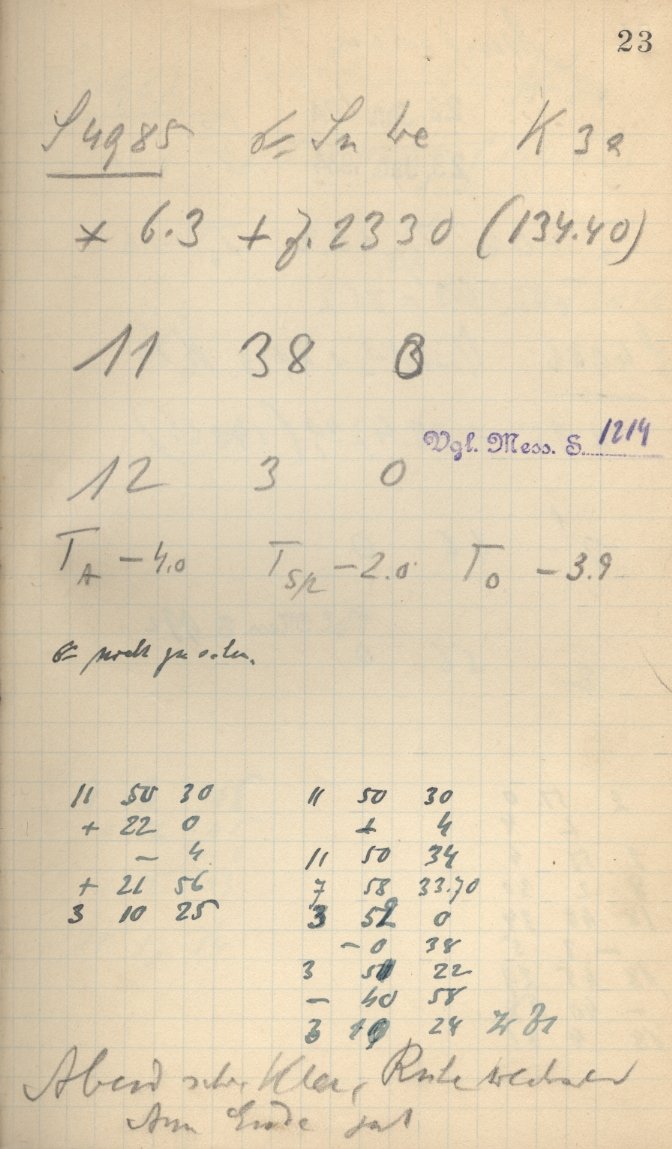 23
S 4985 K 3a
* 6.3 + 7.2330 (134.40)
11 38 0
Vgl. Mess. S. 1214
12 3 0
T_A -4.0 T_Sp -2.0 T_O -3.9
noch zu sehen.
11 50 30 11 50 30
+ 22 0 + 4
- 4 11 50 34
+ 21 56 7 58 33.70
3 10 25 3 52 0
-0 38
3 51 22
- 40 58
3 10 24
Abend sehr klar, Ruhe wechselnd
Am Ende gut